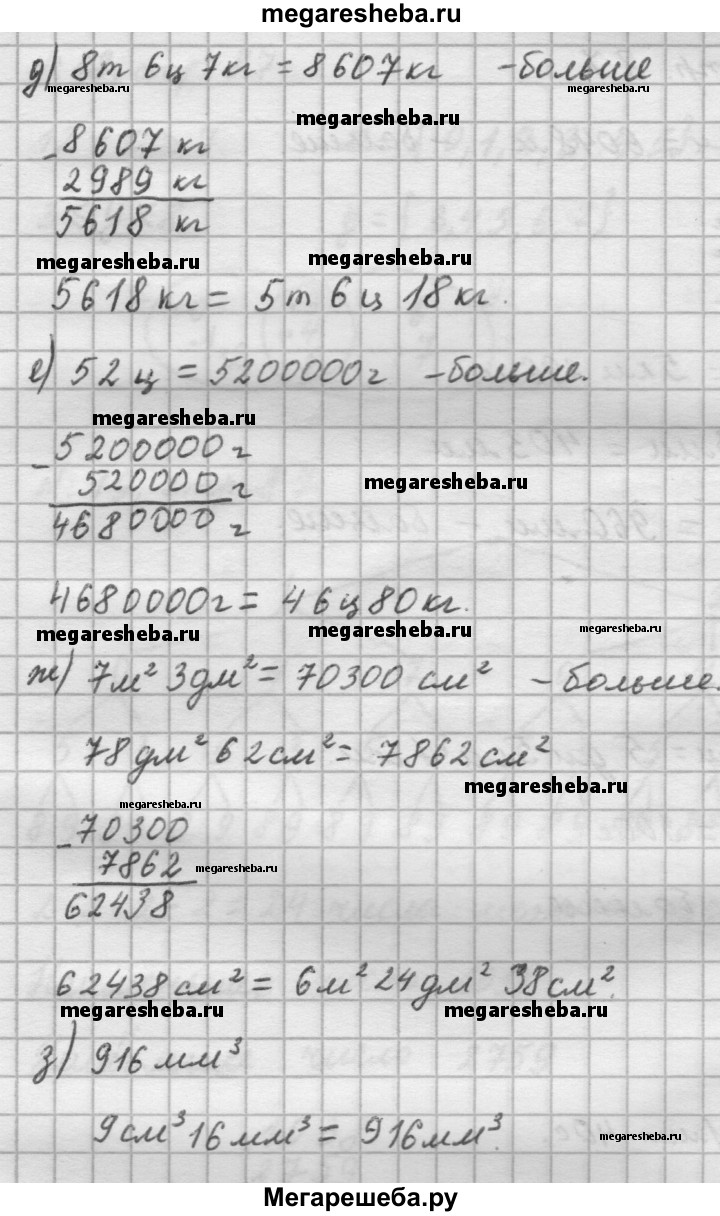 megaresheba.ru
д) 8т 6ц 7кг = 8607кг - больше
megaresheba.ru megaresheba.ru
megaresheba.ru
- 8607 кг
2989 кг
5618 кг
megaresheba.ru megaresheba.ru
5618кг = 5т 6ц 18кг.
е) 52ц = 5200000г - больше.
megaresheba.ru
- 5200000г
megaresheba.ru
520000г
4680000г
4680000г = 46ц 80кг.
megaresheba.ru megaresheba.ru megaresheba.ru
ж) 7м² 3дм² = 70300 см² - больше.
78дм² 62см² = 7862см²
megaresheba.ru
megaresheba.ru
- 70300
7862 megaresheba.ru
62438
62438см² = 6м² 24дм² 38см².
megaresheba.ru megaresheba.ru
з) 916мм³
9см³ 16мм³ = 916мм³.
megaresheba.ru
Мегарешеба.ру